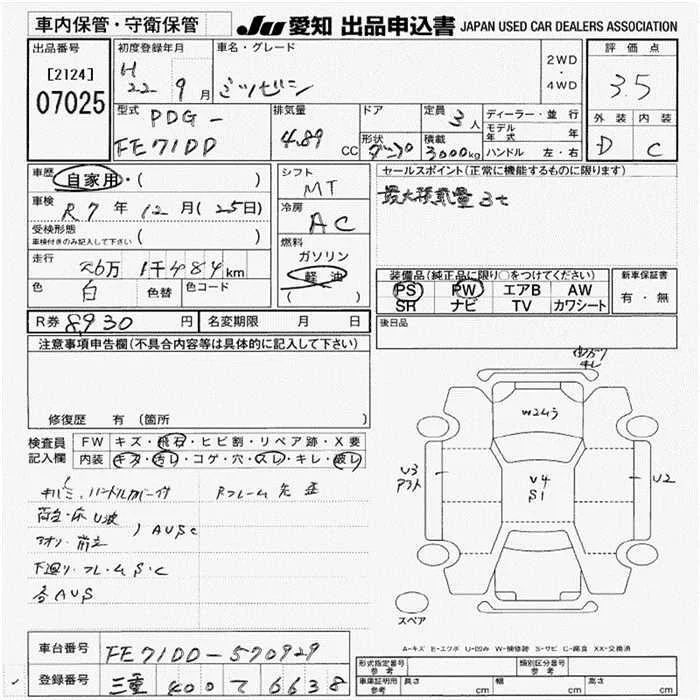 車内保管・守衛保管
JU 愛知 出品申込書 JAPAN USED CAR DEALERS ASSOCIATION
出品番号
[2124]
07025
初度登録年月
H22年 9月
車名・グレード
ミツビシ
2WD
・
4WD
評価点
3.5
外装 内装
D C
型式
PDG-
FE71DD
排気量
4.89 CC
ドア
形状
ダンプ
定員 3人
積載 3000kg
ディーラー・並行
モデル年式 年
ハンドル 左・右
車歴
自家用・( )
車検
R7年12月(25日)
受検形態
車検付きのみ記入して下さい ( )
走行
26万1千484km
色 白 色替 色コード
シフト
MT
冷房
AC
燃料
ガソリン
軽油
( )
セールスポイント(正常に機能するものに限ります)
最大積載量3t
装備品(純正品に限り○をつけてください)
PS PW エアB AW
SR ナビ TV カワシート
新車保証書
有・無
後日品
R券 8930円 名変期限 月 日
注意事項申告欄(不具合内容等は具体的に記入して下さい)
修復歴 有(箇所 )
検査員
記入欄
FW キズ・飛石・ヒビ割・リペア跡・X要
内装 キズ・汚レ・コゲ・穴・スレ・キレ・破レ
ハンドルカバー付
荷台・床U波
アオリ・前立
AUSC
下廻り・フレームS・C
各AUS
キレ
W2ヶ3
U3
U4
S1
U2
スペア
A-キズ E-エクボ U-凹み W-補修跡 S-サビ C-腐食 XX-交換済
車台番号 FE71DD-570929
登録番号 三重 400 て 6638
形式指定番号
参考
類別区分番号
参考
車庫証明用
参考
長さ cm 幅 cm 高さ cm